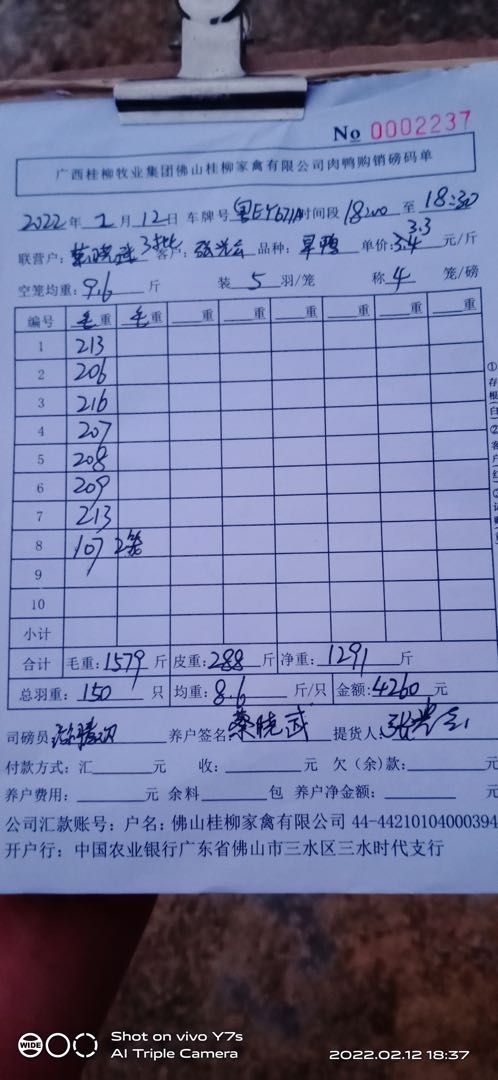 No 0002237
广西桂柳牧业集团佛山桂柳家禽有限公司肉鸭购销磅码单
2022年 2月12日 车牌号 粤EY671A 时间段 18:00 至 18:30
联营户: 蔡晓武 3批 客户: 品种: 旱鸭 单价: 3.4 3.3 元/斤
空笼均重: 9.6 斤 装 5 羽/笼 称 4 笼/磅
编号 毛重 毛重 重 重 重 重 重 重
1 213
2 206
3 216
4 207
5 208
6 209
7 213
8 107 2笼
9
10
小计
合计 毛重: 1579 斤 皮重: 288 斤 净重: 1291 斤
总羽重: 150 只 均重: 8.6 斤/只 金额: 4260 元
司磅员 养户签名 蔡晓武 提货人:
付款方式: 汇 元 收: 元 欠(余)款:
养户费用: 元 余料 包 养户净金额: 元
公司汇款账号: 户名: 佛山桂柳家禽有限公司 44-44210104000394
开户行: 中国农业银行广东省佛山市三水区三水时代支行
WIDE
Shot on vivo Y7s
AI Triple Camera
2022.02.12 18:37